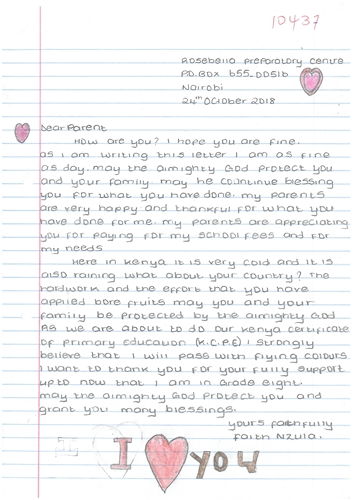 10437
Rosebello preparatory centre
P.O.Box 655-00516
Nairobi
24th October 2018
Dear Parent
How are you? I hope you are fine.
as I am writing this letter I am as fine
as day. may the almighty God protect you
and your family may he countinue blessing
you for what you have done. my parents
are very happy and thankful for what you
have done for me. my parents are appreciating
you for paying for my school fees and for
my needs
Here in Kenya it is very cold and it is
also raining what about your country? The
hardwork and the effort that you have
applied bore fruits may you and your
family be protected by the almighty God
As we are about to do our Kenya certificate
of primary education (K.C.P.E) I strongly
believe that I will pass with flying colours.
I want to thank you for your fully support
upto now that I am in Grade eight.
may the almighty God protect you and
grant you many blessings.
yours faithfully
Faith Nzula.
I you